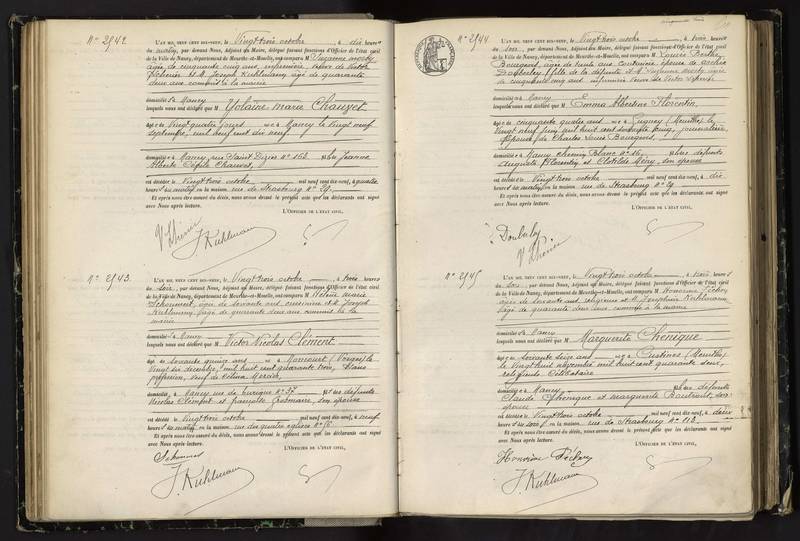 N° 2942.
L'AN MIL NEUF CENT DIX-NEUF, le Vingt trois octobre à dix heures
du matin, par devant Nous, Adjoint au Maire, délégué faisant fonctions d'Officier de l'état civil
de la Ville de Nancy, département de Meurthe-et-Moselle, ont comparu M Suzanne
agée de cinquante cinq ans, infirmière, veuve de Victor
et M. Joseph Kuhlmann, âgé de quarante
deux ans commis à la mairie
domiciliés à Nancy
lesquels nous ont déclaré que M Yolaine Marie Chauzet
âgée de vingt quatre jours née à Nancy le vingt neuf
septembre, mil neuf cent dix neuf
domiciliée à Nancy, rue Saint Dizier n° 162 fille de Jeanne
est décédée le Vingt trois octobre mil neuf cent dix-neuf, à quatre
heures du matin, en la maison rue de Strasbourg n° 29
Et après nous être assuré du décès, nous avons dressé le présent acte que les déclarants ont signé
avec Nous après lecture.
L'OFFICIER DE L'ÉTAT CIVIL,
J. Kuhlmann
N° 2943.
L'AN MIL NEUF CENT DIX-NEUF, le Vingt trois octobre à trois heures
du soir, par devant Nous, Adjoint au Maire, délégué faisant fonctions d'Officier de l'état civil
de la Ville de Nancy, département de Meurthe-et-Moselle, ont comparu M Marie
agée de soixante ans, cuisinière et M. Joseph
Kuhlmann, âgé de quarante deux ans commis à la
mairie
domiciliés à Nancy
lesquels nous ont déclaré que M Victor Nicolas Clément
âgé de soixante quinze ans né à (Vosges) le
vingt six décembre, mil huit cent quarante trois, Sans
profession, veuf de
domicilié à Nancy rue de n° 37 fils des défunts
Nicolas Clément et françoise son épouse
est décédé le Vingt trois octobre mil neuf cent dix-neuf, à neuf
heures du matin, en la maison rue des quatre églises n°
Et après nous être assuré du décès, nous avons dressé le présent acte que les déclarants ont signé
avec Nous après lecture.
L'OFFICIER DE L'ÉTAT CIVIL,
J. Kuhlmann
N° 2944
L'AN MIL NEUF CENT DIX-NEUF, le Vingt trois octobre à trois heures
du soir, par devant Nous, Adjoint au Maire, délégué faisant fonctions d'Officier de l'état civil
de la Ville de Nancy, département de Meurthe-et-Moselle, ont comparu M Louise Berthe
Bourgeois, agée de trente ans couturière épouse de
fille de la défunte et M. Suzanne agée
de cinquante cinq ans infirmière veuve de Victor
domiciliés à Nancy
lesquels nous ont déclaré que M Emma Albertine Florentin,
âgée de cinquante quatre ans née à (Meurthe) le
Vingt neuf Juin mil huit cent soixante cinq, journalière,
Epouse de Charles Louis Bourgeois,
domiciliée à Nancy chemin Blanc n° fille des défunts
Auguste Florentin et Clotilde son épouse
est décédée le Vingt trois octobre mil neuf cent dix-neuf, à dix
heures du matin, en la maison rue de Strasbourg n° 29
Et après nous être assuré du décès, nous avons dressé le présent acte que les déclarants ont signé
avec Nous après lecture.
L'OFFICIER DE L'ÉTAT CIVIL,
N° 2945
L'AN MIL NEUF CENT DIX-NEUF, le Vingt trois octobre à trois heures
du soir, par devant Nous, Adjoint au Maire, délégué faisant fonctions d'Officier de l'état civil
de la Ville de Nancy, département de Meurthe-et-Moselle, ont comparu M Honorine
agée de soixante ans religieuse et M. Joseph Kuhlmann
âgé de quarante deux ans commis à la mairie
domiciliés à Nancy
lesquels nous ont déclaré que M Marguerite Chenique
âgée de soixante seize ans née à Custines (Meurthe) le
Vingt huit novembre mil huit cent quarante deux,
Célibataire
domiciliée à Nancy fille des défunts
Claude Chenique et marguerite son
épouse
est décédée le Vingt trois octobre mil neuf cent dix-neuf, à deux
heures du soir, en la maison rue de Strasbourg n° 113
Et après nous être assuré du décès, nous avons dressé le présent acte que les déclarants ont signé
avec Nous après lecture.
L'OFFICIER DE L'ÉTAT CIVIL,
J. Kuhlmann